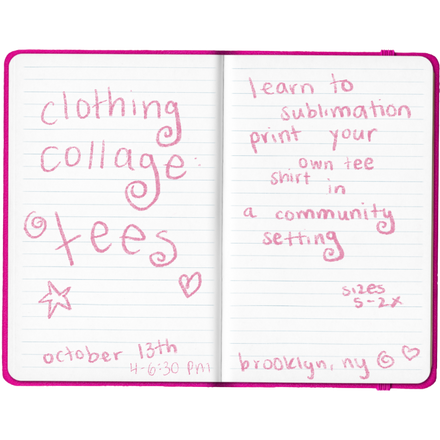 clothing
collage:
tees
october 13th
4-6:30 PM
learn to
sublimation
print your
own tee
shirt in
a community
setting
sizes
s-2x
brooklyn, ny